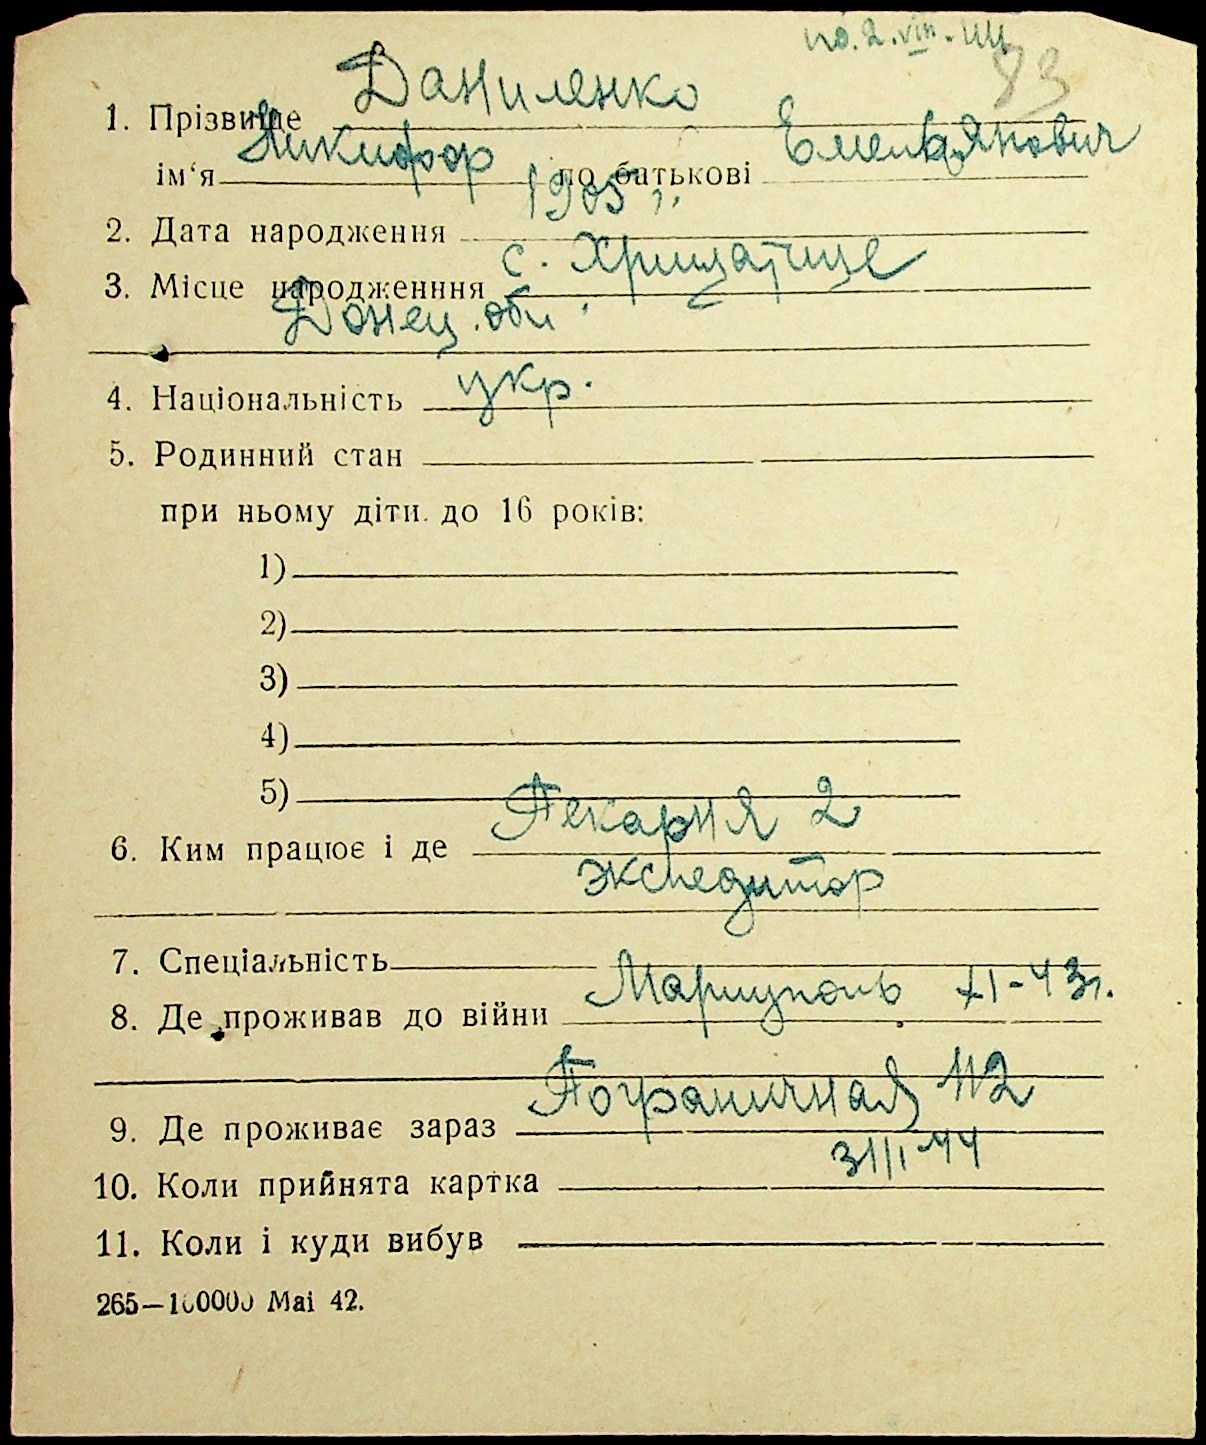 по. 2. VIII. 44
83
1. Прізвище Даниленко
ім‘я Никифор по батькові Емельянович
2. Дата народження 1905 г.
3. Місце народженння с. Хрищатице
Донец. обл.
4. Національність укр.
5. Родинний стан
при ньому діти до 16 років:
1)
2)
3)
4)
5)
6. Ким працює і де Пекарня 2
экспедитор
7. Спеціальність
8. Де проживав до війни Мариуполь XI-43 г.
9. Де проживає зараз Пограничная 112
10. Коли прийнята картка 31/I-44
11. Коли і куди вибув
265—100000 Mai 42.